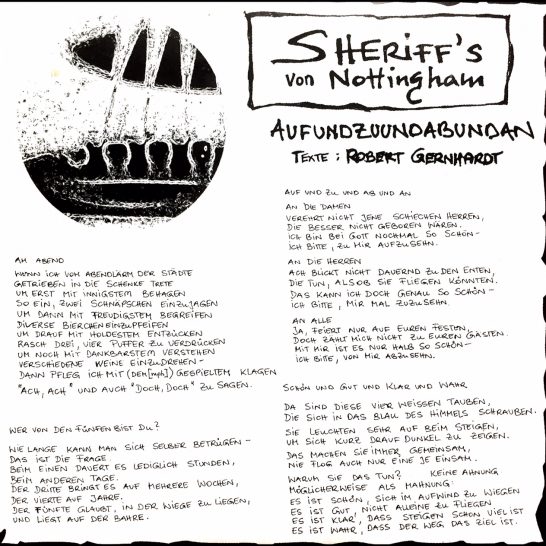 SHERIFF'S
VON NOTTINGHAM
AUFUNDZUUNDABUNDAN
TEXTE: ROBERT GERNHARDT
AM ABEND
WENN ICH VOM ABENDLÄRM DER STÄDTE
GETRIEBEN IN DIE SCHENKE TRETE
UM ERST MIT INNIGSTEM BEHAGEN
SO EIN, ZWEI SCHNÄPSCHEN EINZUJAGEN
UM DANN MIT FREUDIGSTEM BEGREIFEN
DIVERSE BIERCHEN EINZUPFEIFEN
UM DRAUF MIT HOLDESTEM ENTZÜCKEN
RASCH DREI, VIER PUFFER ZU VERDRÜCKEN
UM NOCH MIT DANKBARSTEM VERSTEHEN
VERSCHIEDENE WEINE EINZUDREHEN -
DANN PFLEG ICH MIT (DEM[MPH]) GESPIELTEM KLAGEN
"ACH, ACH" UND AUCH "DOCH, DOCH" ZU SAGEN.
WER VON DEN FÜNFEN BIST DU?
WIE LANGE KANN MAN SICH SELBER BETRÜGEN -
DAS IST DIE FRAGE.
BEIM EINEN DAUERT ES LEDIGLICH STUNDEN,
BEIM ANDEREN TAGE.
DER DRITTE BRINGT ES AUF MEHRERE WOCHEN,
DER VIERTE AUF JAHRE.
DER FÜNFTE GLAUBT, IN DER WIEGE ZU LIEGEN,
UND LIEGT AUF DER BAHRE.
AUF UND ZU UND AB UND AN
AN DIE DAMEN
VEREHRT NICHT JENE SCHIECHEN HERREN,
DIE BESSER NICHT GEBOREN WÄREN.
ICH BIN BEI GOTT NOCHMAL SO SCHÖN -
ICH BITTE, ZU MIR AUFZUSEHN.
AN DIE HERREN
ACH BLICKT NICHT DAUERND ZU DEN ENTEN,
DIE TUN, ALSOB SIE FLIEGEN KÖNNTEN.
DAS KANN ICH DOCH GENAU SO SCHÖN -
ICH BITTE, MIR MAL ZUZUSEHN.
AN ALLE
JA, FEIERT NUR AUF EUREN FESTEN,
DOCH ZÄHLT MICH NICHT ZU EUREN GÄSTEN.
MIT MIR IST ES NUR HALB SO SCHÖN -
ICH BITTE, VON MIR ABZUSEHN.
SCHÖN UND GUT UND KLAR UND WAHR
DA SIND DIESE VIER WEISSEN TAUBEN,
DIE SICH IN DAS BLAU DES HIMMELS SCHRAUBEN.
SIE LEUCHTEN SEHR AUF BEIM STEIGEN,
UM SICH KURZ DRAUF DUNKEL ZU ZEIGEN.
DAS MACHEN SIE IMMER GEMEINSAM,
NIE FLOG AUCH NUR EINE JE EINSAM.
WARUM SIE DAS TUN? KEINE AHNUNG
MÖGLICHERWEISE ALS MAHNUNG:
ES IST SCHÖN, SICH IM AUFWIND ZU WIEGEN
ES IST GUT, NICHT ALLEINE ZU FLIEGEN
ES IST KLAR, DASS STEIGEN SCHON VIEL IST
ES IST WAHR, DASS DER WEG DAS ZIEL IST.